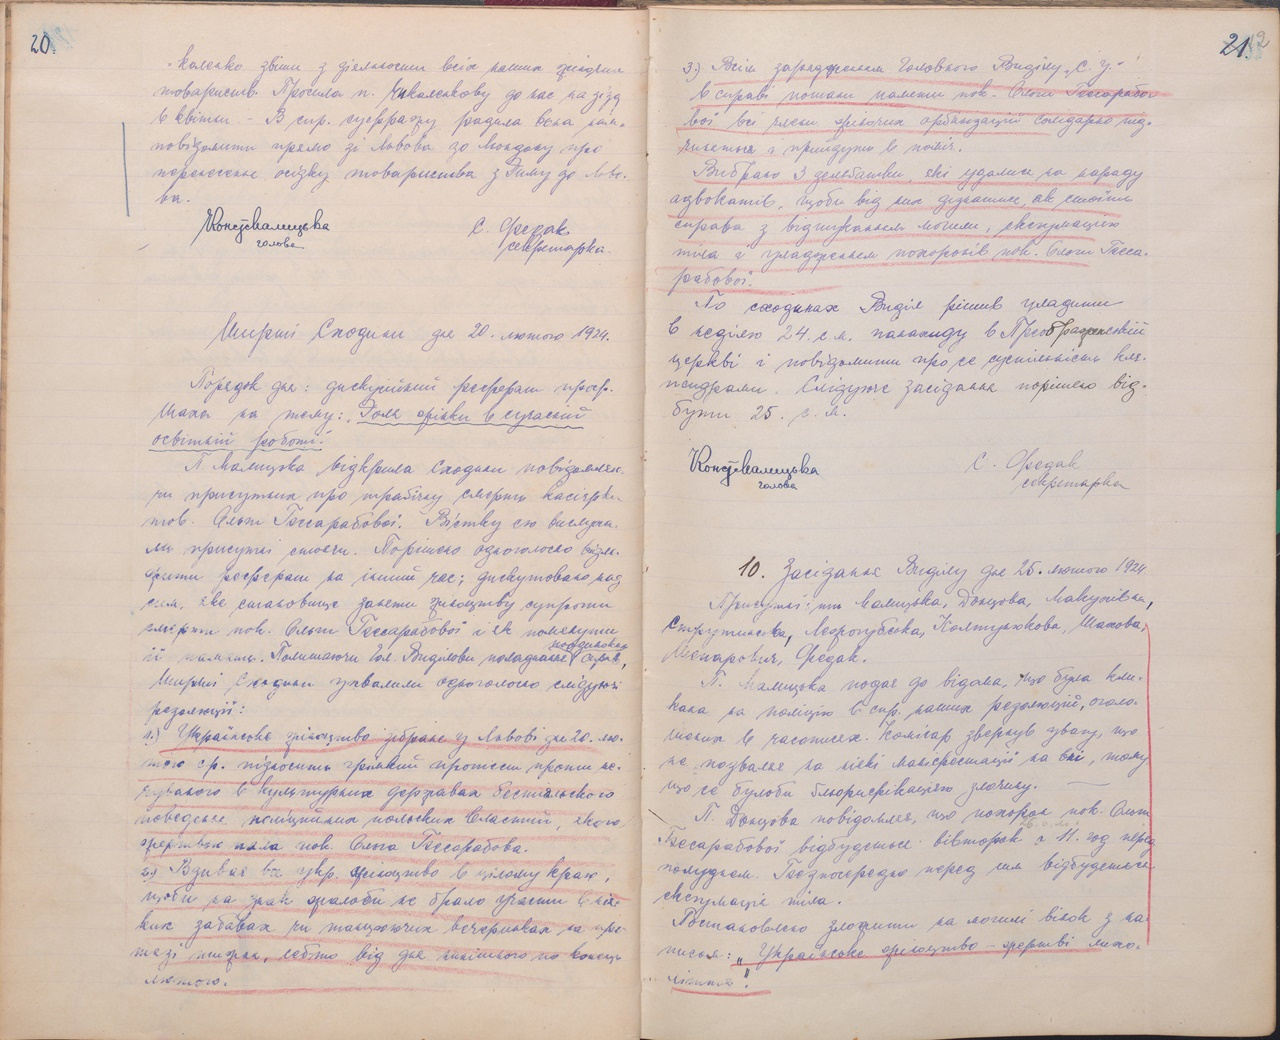 20.
колєнко звіти з діяльности всіх наших жіночих
товариств. Просила п. Чикаленкову до нас на зїзд
в квітни. – В спр. суфражу радила вона нам
повідомити прямо зі Львова до Льондону про
перенесенє осідку товариства з Риму до Льво-
ва.
Констмалицька
голова
С. Федак
секретарка.
Ширші Сходини дня 20. лютого 1924.
Порядок дня: дискусійний реферат проф.
Шаха на тему: Роля жінки в сучасній
освітній роботі.
П. Малицька відкрила Сходини повідомляю-
чи присутних про трагічну смерть касієрки
тов. Ольги Бессарабової. Вістку сю вислуха-
ли присутні стоячи. Порішено одноголосно відло-
жити реферат на інший час; дискутовано над
сим, яке становище заняти жіноцтву супроти
смерти пок. Ольги Бессарабової і як помянути
її память. Полишаючи Гол. Виділови поладнанє поодиноких справ,
Ширші Сходини ухвалили одноголосно слідуючі
резолюції:
1.) Українське жіноцтво зібране у Львові дня 20. лю-
того с.р. підносить грімкий протест проти не-
чуваного в культурних державах бестіяльського
поведення поліційних польских властий, якого
жертвою пала пок. Ольга Бессарабова.
2.) Взиває все укр. жіноцтво в цілому краю,
щоби на знак жалоби не брало участи в ніяких
забавах чи танцюючих вечерниках на протязі
тижня, себто від дня нинішнього по конець
лютого.
21.
3.) Всім зарядженням Головного Виділу „С. У."
в справі пошани памяти пок. Ольги Бессарабо-
вої всі члени жіночих орґанізацій солідарно під-
чиняться і прийдуть в поміч.
Вибрано 3 делєґатки, які удались на нараду
адвокатів, щоби від них дізнатися, як стоїть
справа з відшуканнєм могили, ексгумацією
тіла і уладженнєм похоронів пок. Ольги Бесса-
рабової.
По сходинах Виділ рішив уладити
в неділю 24. с.м. панахиду в Преображенській
церкві і повідомити про се суспільність кле-
псидрами. Слідуюче засіданнє порішено від-
бути 25. с. м.
Констмалицька
голова
С. Федак
секретарка
10. Засіданнє Виділу дня 25. лютого 1924
Присутні: пп Малицька, Донцова, Макухівна,
Струтинська, Мадрогубська, Колтунюкова, Шахова,
Федак.
П. Малицька подає до відома, що була кли-
кана на поліцію в спр. наших резолюцій, оголо-
шених в часописях. Комісар звернув увагу, що
не позваляє на ніякі маніфестації на вні, тому
що се булоби ґльорифікацією злочину.
П. Донцова повідомляє, що похорон пок. Ольги
Бессарабової відбудеться вівторок о 11. год перед
полуднем. Безпосередно перед тим відбудеться
ексгумація тіла.
Постановлено зложити на могилі вінок з на-
писом: „Українське жіноцтво – жертві лихо-
ліття"!